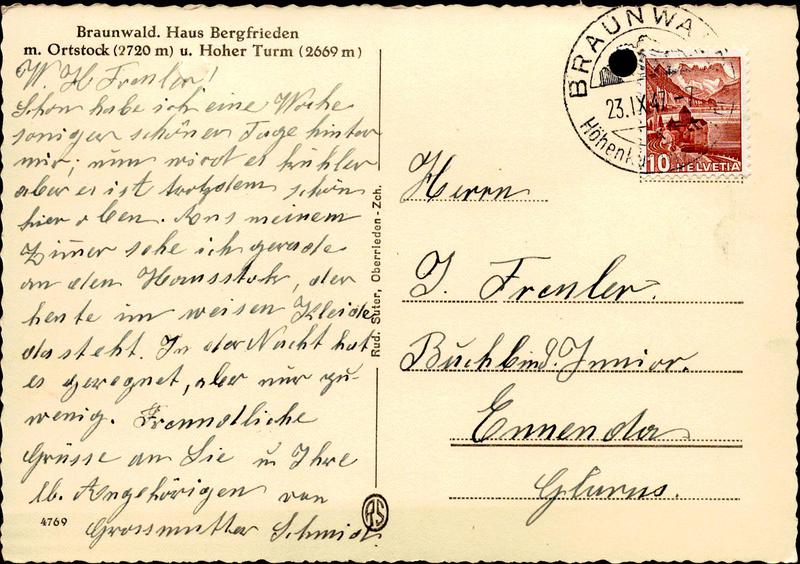 Braunwald. Haus Bergfrieden
m. Ortstock (2720 m) u. Hoher Turm (2669 m)
W. H. Frenler!
Schon habe ich eine Woche
soniger schöner Tage hinter
mir; nun wird es kühler
aber es ist trotzdem schön
hier oben. Aus meinem
Zimmer sehe ich gerade
an den Hausstok, der
heute im weisen Kleide
dasteht. In der Nacht hat
es geregnet, aber nur zu-
wenig. Freundtliche
Grüsse an Sie u Ihre
lb. Angehörigen von
Grossmutter Schmid.
4769
Rud. Suter, Oberrieden-Zch.
RS
BRAUNWA
23.IX.47.-7
Höhenku
10 HELVETIA
Herrn
J. Frenler.
Buchbind. Junior.
Ennenda
Glarus.